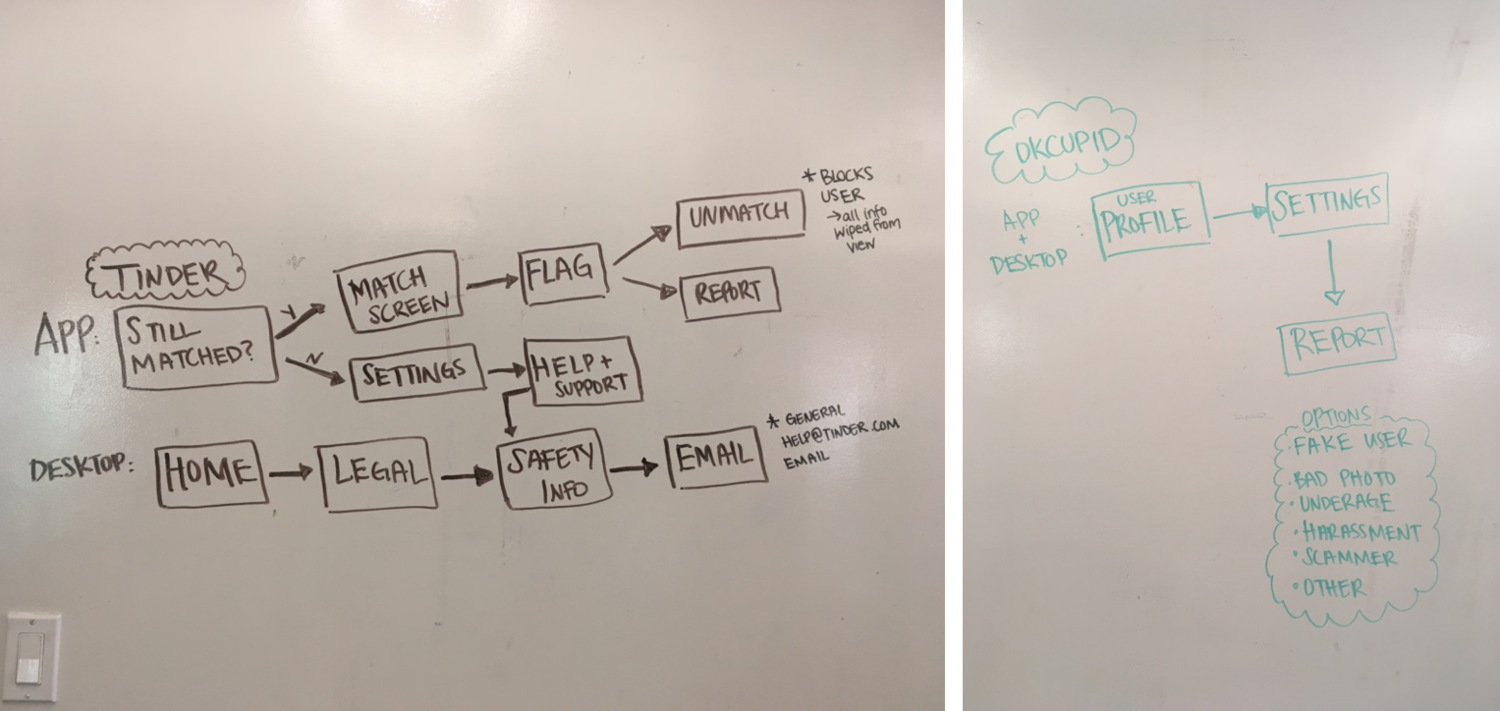 TINDER
APP:
STILL
MATCHED?
Y
MATCH
SCREEN
FLAG
UNMATCH
* BLOCKS
USER
→all info
wiped from
view
REPORT
N
SETTINGS
HELP +
SUPPORT
DESKTOP:
HOME
LEGAL
SAFETY
INFO
EMAIL
* GENERAL
HELP@TINDER.COM
EMAIL
OKCUPID
APP
+
DESKTOP
:
USER
PROFILE
SETTINGS
REPORT
OPTIONS
· FAKE USER
· BAD PHOTO
· UNDERAGE
· HARASSMENT
· SCAMMER
· OTHER